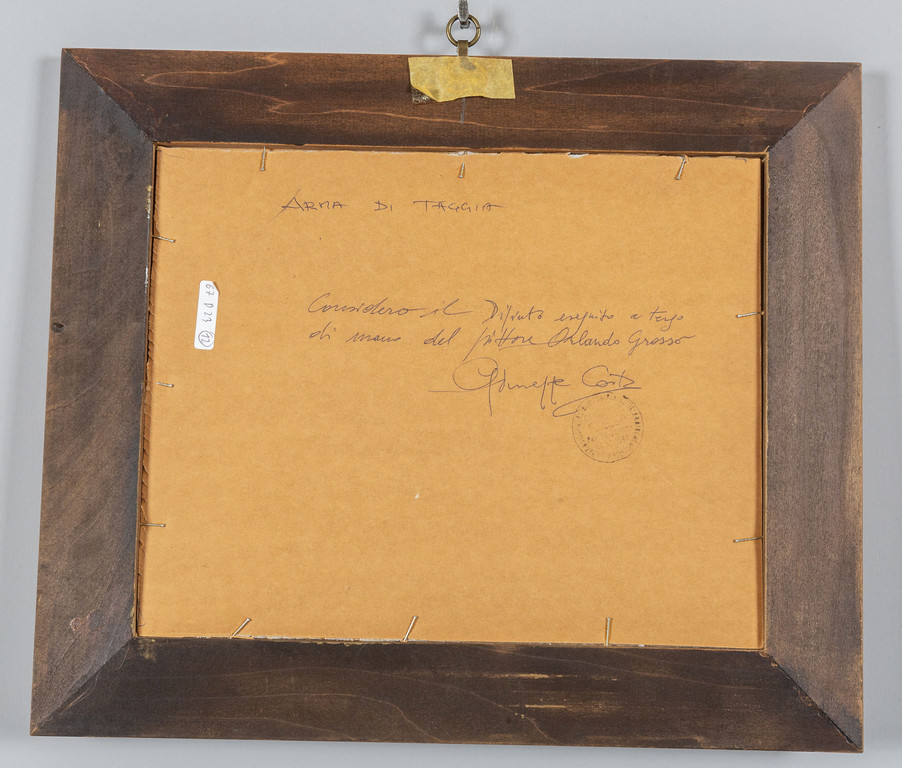 ARMA DI TAGGIA
Considero il Dipinto eseguito a tergo
di mano del pittore Orlando Grosso
Giuseppe Costa
67 D 23 (12)